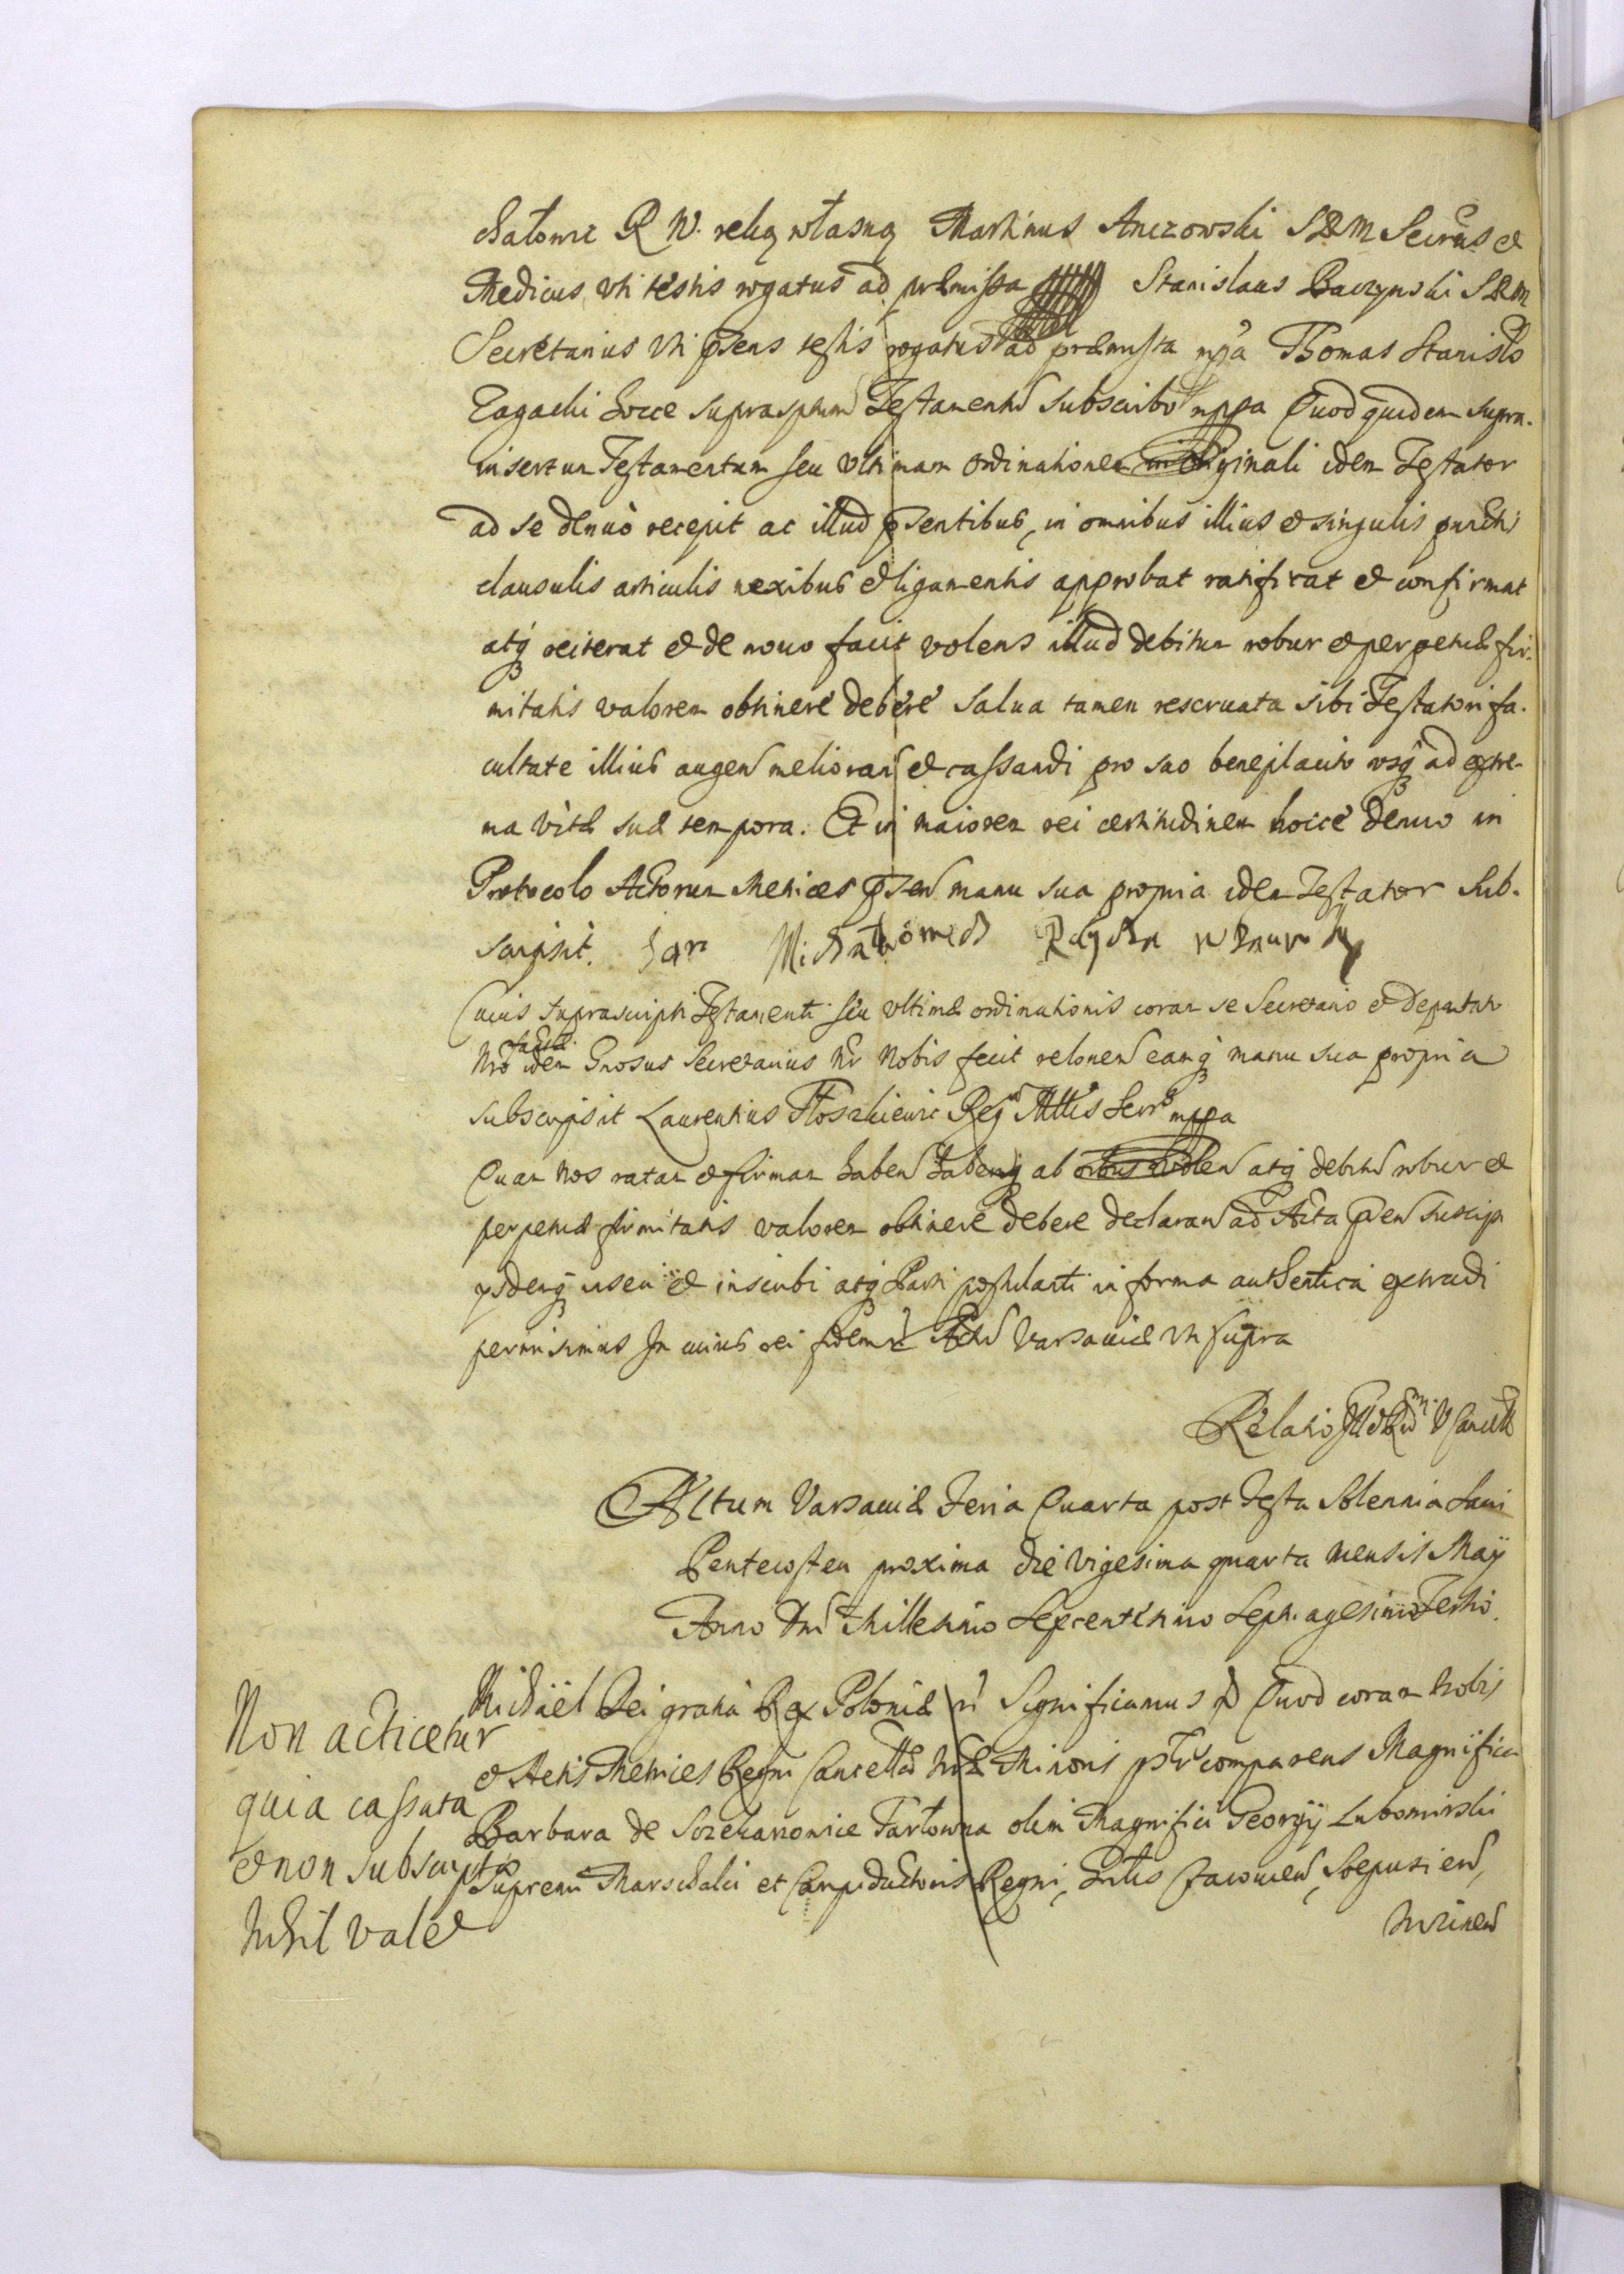 Martinus Anczowski SRM Secrius et
Medicus uti testis rogatus ad præmissa Stanislaus Baczynski SRM
Secretarius uti psens testis rogatus ad præmissa mpa Thomas Stanisl
hocce suprasptum Testamentu subscribo mppa Quod quidem supra-
insertum Testamentum seu ultimam ordinationem in originali idem Testator
ad se denuò recepit ac illud psentibus, in omnibus illius et singulis punctis
clausulis articulis nexibus et ligamentis approbat ratificat et confirmat
atq reiterat et de nouo facit volens illud debitum robur et perpetuæ fir-
mitatis valorem obtinere debere salua tamen reseruata sibi Testatori fa-
cultate illius augen melioran et cassandi pro suo beneplacito usq ad extre-
ma vitæ suæ tempora. Et in maiorem rei certitudinem hocce denuo in
Protocolo Actorum Metrices psen manu sua propria idem Testator sub-
scripsit. Jan
Cuius suprascripti Testamenti seu ultimæ ordinationis coram se Secretario et Deputato
Nro factæ idem Gnosus Secretarius Nr Nobis fecit relonem eamq manu sua propria
subscripsit Laurentius Reg Mttis Secrs mppa
Quam Nos ratam et firmam haben habeng ab atq debitu robur et
perpetuæ firmitatis valorem obtinere debere declaran ad Acta psen suscip
ysdemq inseri et inscribi atq Parti postulanti in forma authentica extradi
permisimus In cuius rei fidem Actu Varsauiæ ut supra
Relatio
Actum Varsauiæ Feria Quarta post Festa Solennia Sacri
Pentecosten proxima die vigesima quarta mensis Maÿ
Anno Dni Millesimo Sexcentesimo Septuagesimo Tertio.
Michaël Dei gratia Rex Poloniæ Significamus Quod coram Nobis
et Actis Metrices Regni Cancell Nræ Minoris comparens Magnifica
Barbara de Tarłowna olim Magnifici Georgÿ Lubomirski
Supremi Marschalci et Campiductoris Regni,
Non acticetur
quia cassata
et non subscripta
Nihil valet